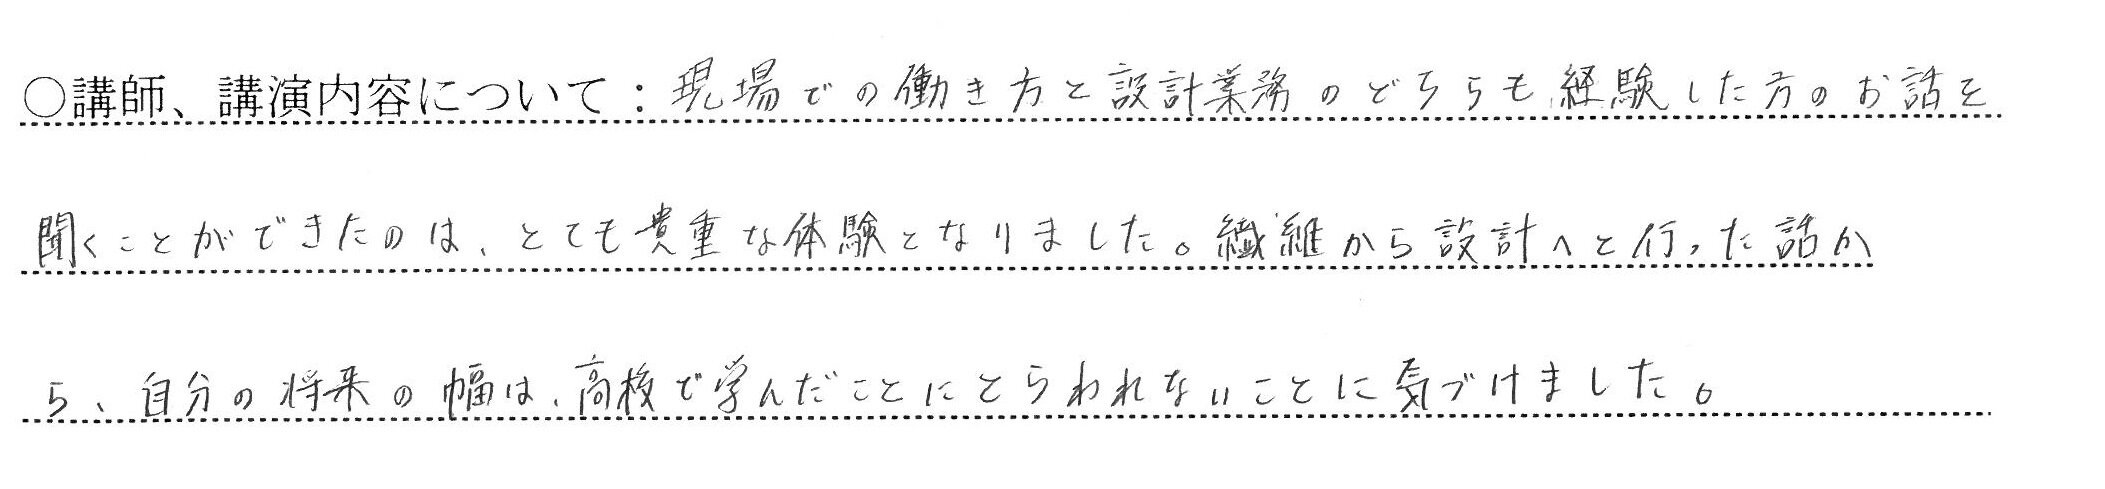 ○講師、講演内容について：現場での働き方と設計業務のどちらも経験した方のお話を
聞くことができたのは、とても貴重な体験となりました。繊維から設計へと行った話か
ら、自分の将来の幅は、高校で学んだことにとらわれないことに気づけました。